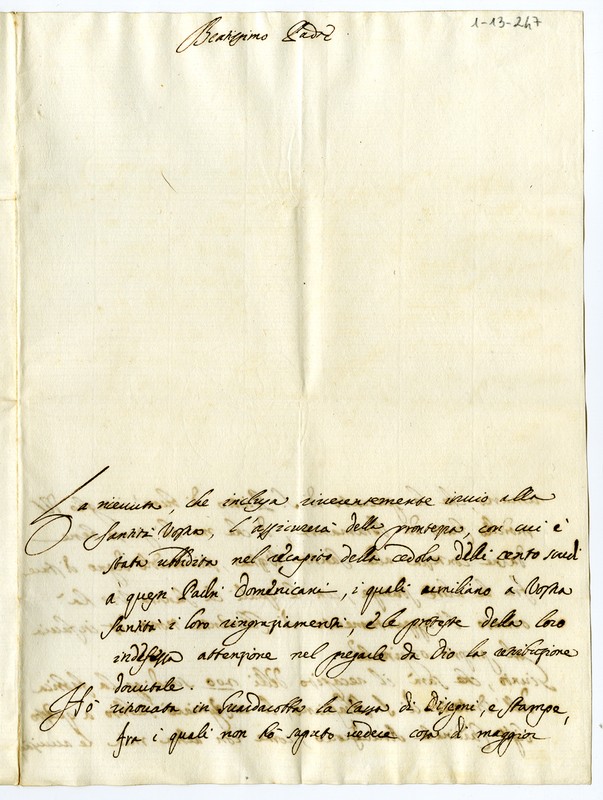 1-13-247
Beatissimo Padre
La riceuuta, che inclusa riuerentemente inuio alla
Santità Vostra, l'assicurerà della prontezza, con cui è
stata ubbidita nel recapito della cedola delli cento scudi
à questi Padri Domenicani, i quali umiliano à Vostra
Santità i loro ringraziamenti, è le proteste della loro
indefessa attenzione nel pregarle da Dio la retribuzione
douutale.
Hò rinouata in Guardarobba la cassa di Disegni, e stampe,
fra i quali non hò saputo uedere cosa di maggior